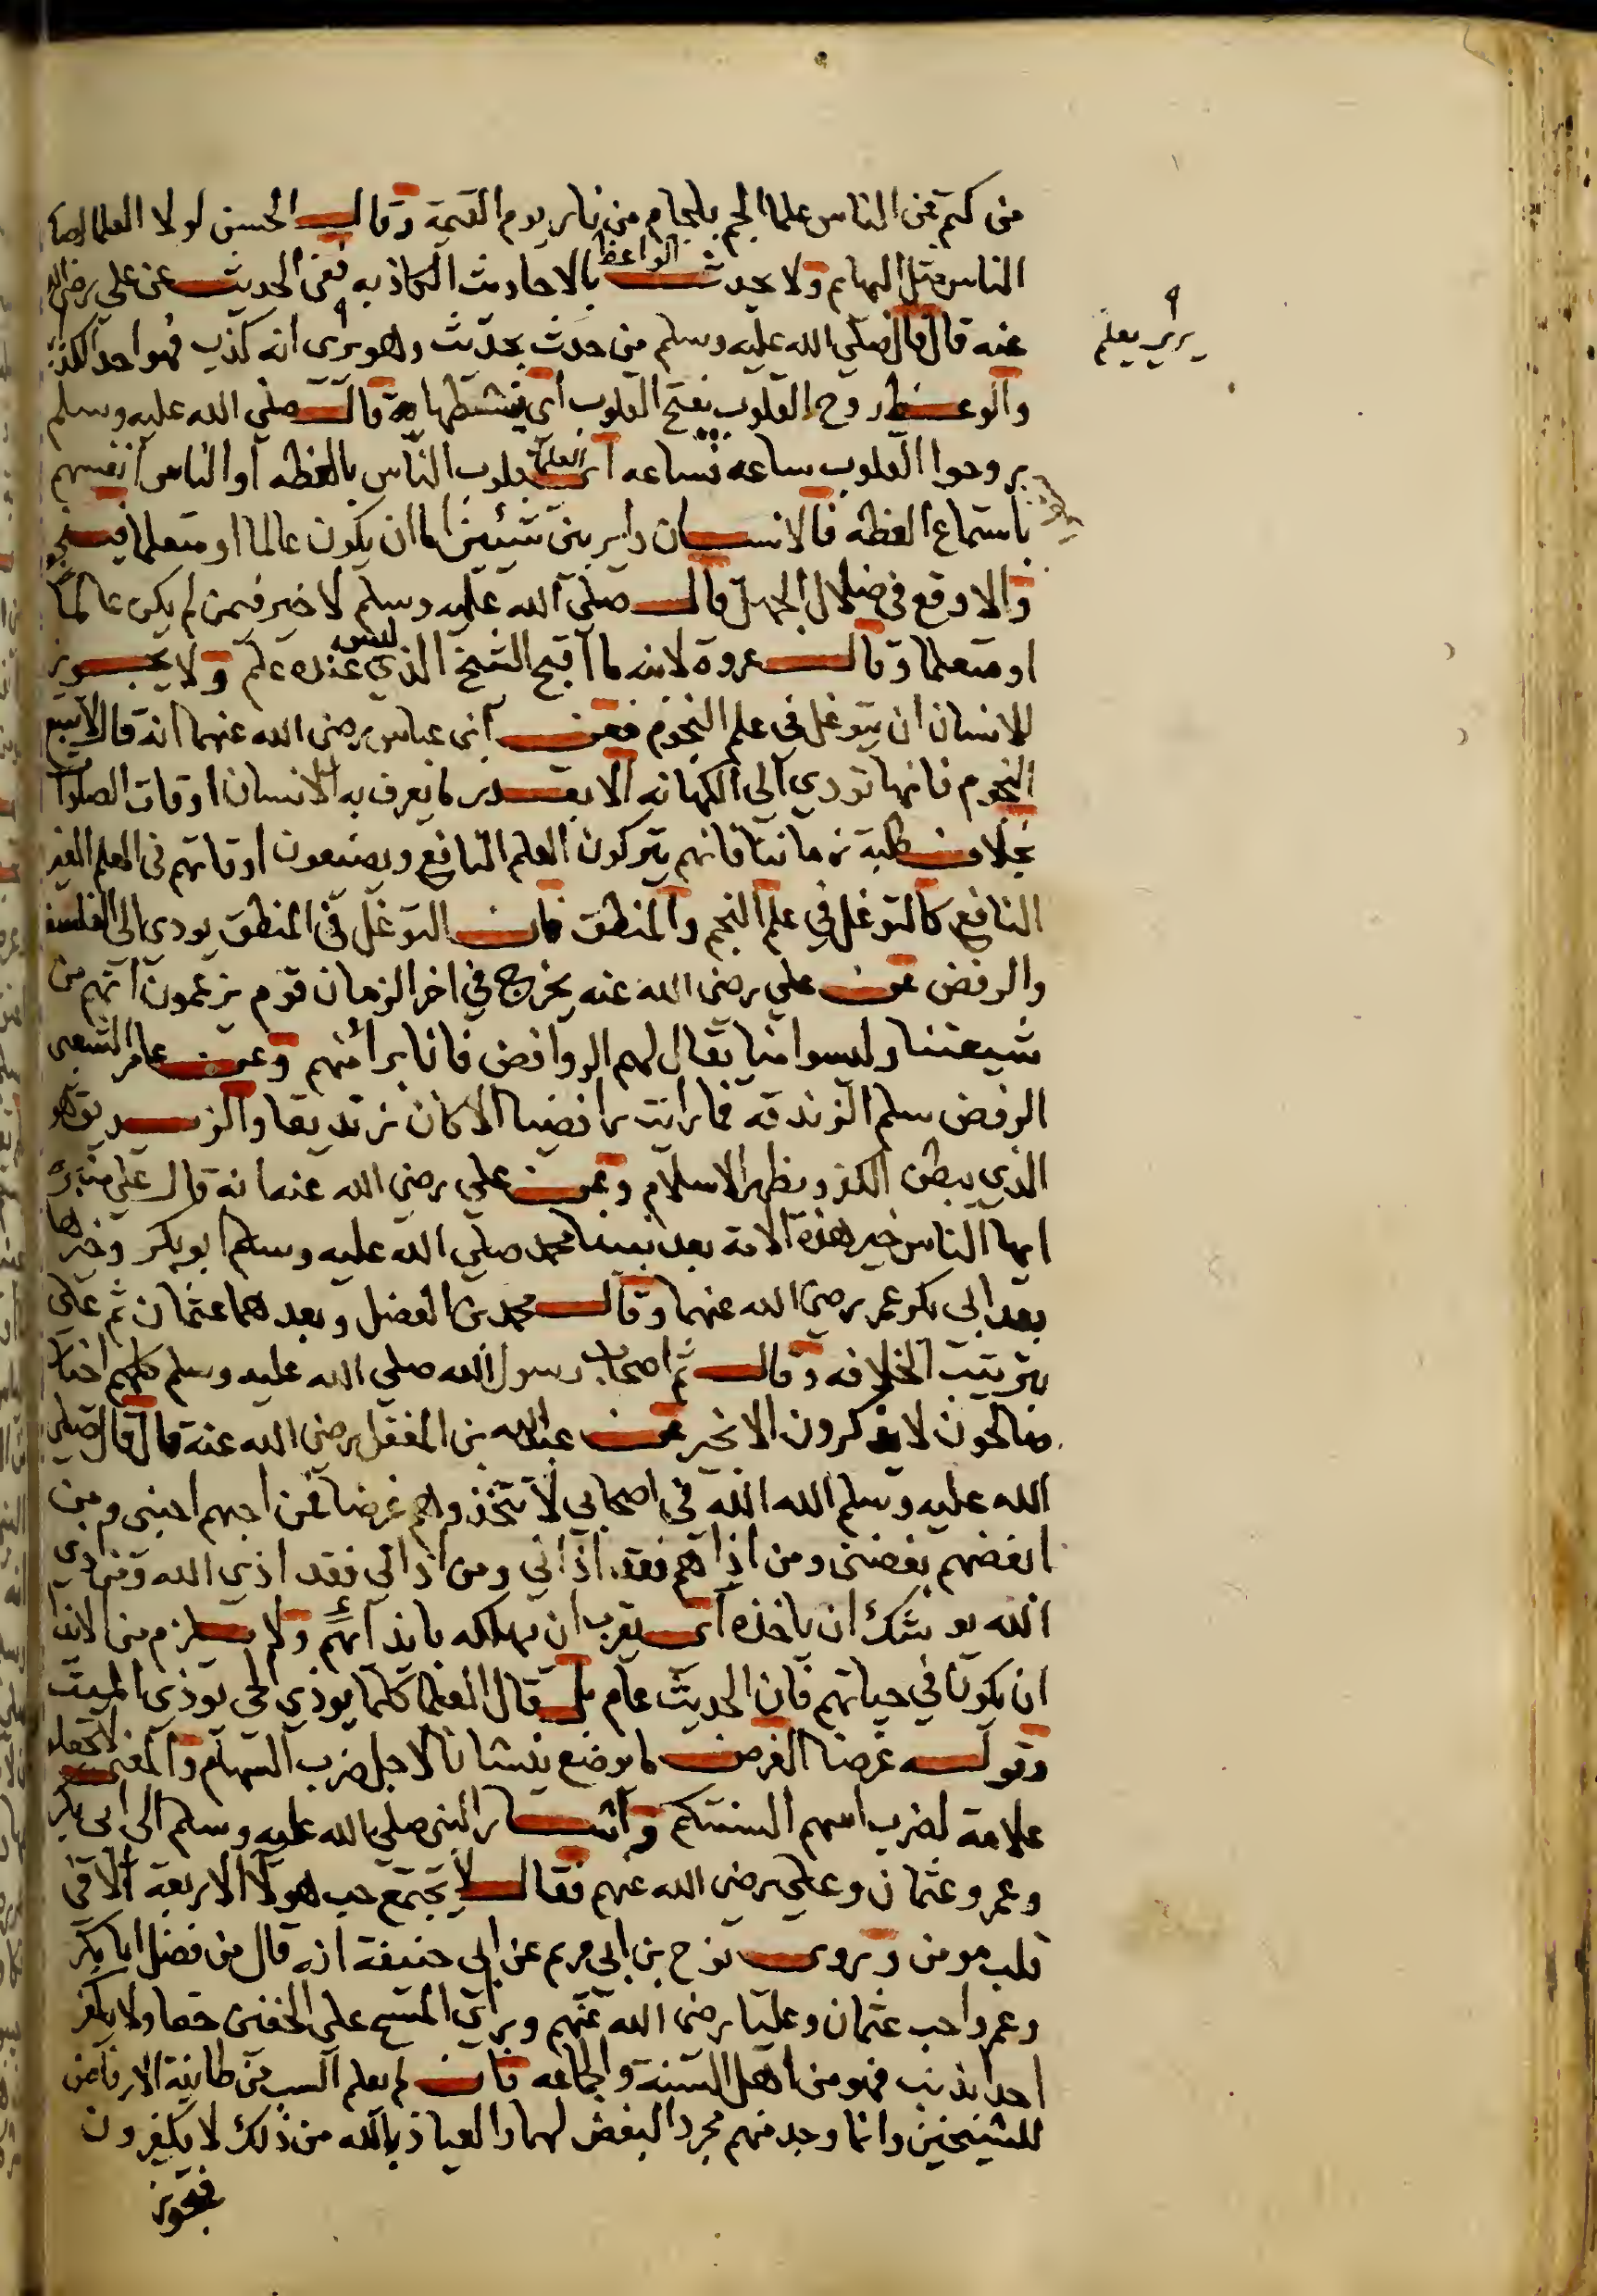 من كتم عن الناس علما الجم بلجام من نار يوم القيمة وقال الحسن لولا العلما لصار
الناس مثل البهايم ولا يحدث الواعظ بالاحاديث الكاذبه ففى الحديث عن علي رضى الله
عنه قال قال صلي الله عليه وسلم من حدث بحديث وهو يرى انه كذب فهو احد الكذابين
يرى يعلم
والوعظ روح القلوب بفتح القلوب اى ينشطها قال صلي الله عليه وسلم
روحوا القلوب ساعه فساعه اى العلما قلوب الناس بالعظه او الناس انفسهم
باستماع العظه فالانسان داير بين شيئين اما ان يكون عالما او متعلما فينجو
والا وقع في ضلال الجهل قال صلي الله عليه وسلم لا خير فيمن لم يكن عالما
او متعلما وقال عروة لابنه ما اقبح الشيخ الذي ليس عنده علم ولا يجوز
للانسان ان يتوغل في علم النجوم فعن ابن عباس رضى الله عنهما انه قال لا تتبع
النجوم فانها تودي الى الكهانه الا بقدر ما يعرف به الانسان اوقات الصلوات
بخلاف طلبة زماننا فانهم يتركون العلم النافع ويضيعون اوقاتهم في العلم الغير
النافع كالتوغل في علم النجم والمنطق فان التوغل في المنطق يودي الى الفلسفه
والرفض عن علي رضى الله عنه يخرج في اخر الزمان قوم يزعمون انهم من
شيعتنا وليسوا منا يقال لهم الروافض فانا برأ منهم وعن عامر الشعبى
الرفض سلم الزندقه فما رايت رافضيا الا كان زنديقا والزنديق هو
الذي يبطن الكفر ويظهر الاسلام وعن علي رضى الله عنه انه قال على منبره
ايها الناس خير هذه الامة بعد نبينا محمد صلي الله عليه وسلم ابو بكر وخيرها
بعد ابى بكر عمر رضى الله عنهما وقال محمد بن الفضل وبعدهما عثمان ثم على
بترتيب الخلافه وقال ثم اصحاب رسول الله صلي الله عليه وسلم كلهم اخيار
صالحون لا يذكرون الا بخير عن عبد الله بن المغفل رضى الله عنه قال قال صلي
الله عليه وسلم الله الله في اصحابي لا تتخذوهم غرضا فمن احبهم احبنى ومن
ابغضهم بغضنى ومن اذاهم فقد اذانى ومن اذاني فقد اذى الله ومن اذى
الله يوشك ان ياخذه اى يقرب ان يهلكه بايذائهم ولا يلزم من الايذا
ان يكون في حياتهم فان الحديث عام بل قال العلما كلما يوذي الحي يوذى الميت
وقوله غرضا الغرض ما يوضع نيشانا لاجل ضرب السهام والمعنى لا تجعلوهم
علامة لضرب اسهم السنتكم واشار النبى صلي الله عليه وسلم الى ابى بكر
وعمر وعثمان وعلي رضى الله عنهم فقال لا يجتمع حب هولا الاربعة الا في
قلب مومن وروى نوح بن ابي مريم عن ابى حنيفة انه قال من فضل ابا بكر
وعمر واحب عثمان وعليا رضى الله عنهم وبراى المسح على الخفين حقا ولا يكفر
احدا بذنب فهو من اهل السنة والجماعه فان لم يعلم السب من طائفة الارفاض
للشيخين وانما وجد منهم مجرد البغض لهما والعياذ بالله من ذلك لا يكفرون
فيجوز